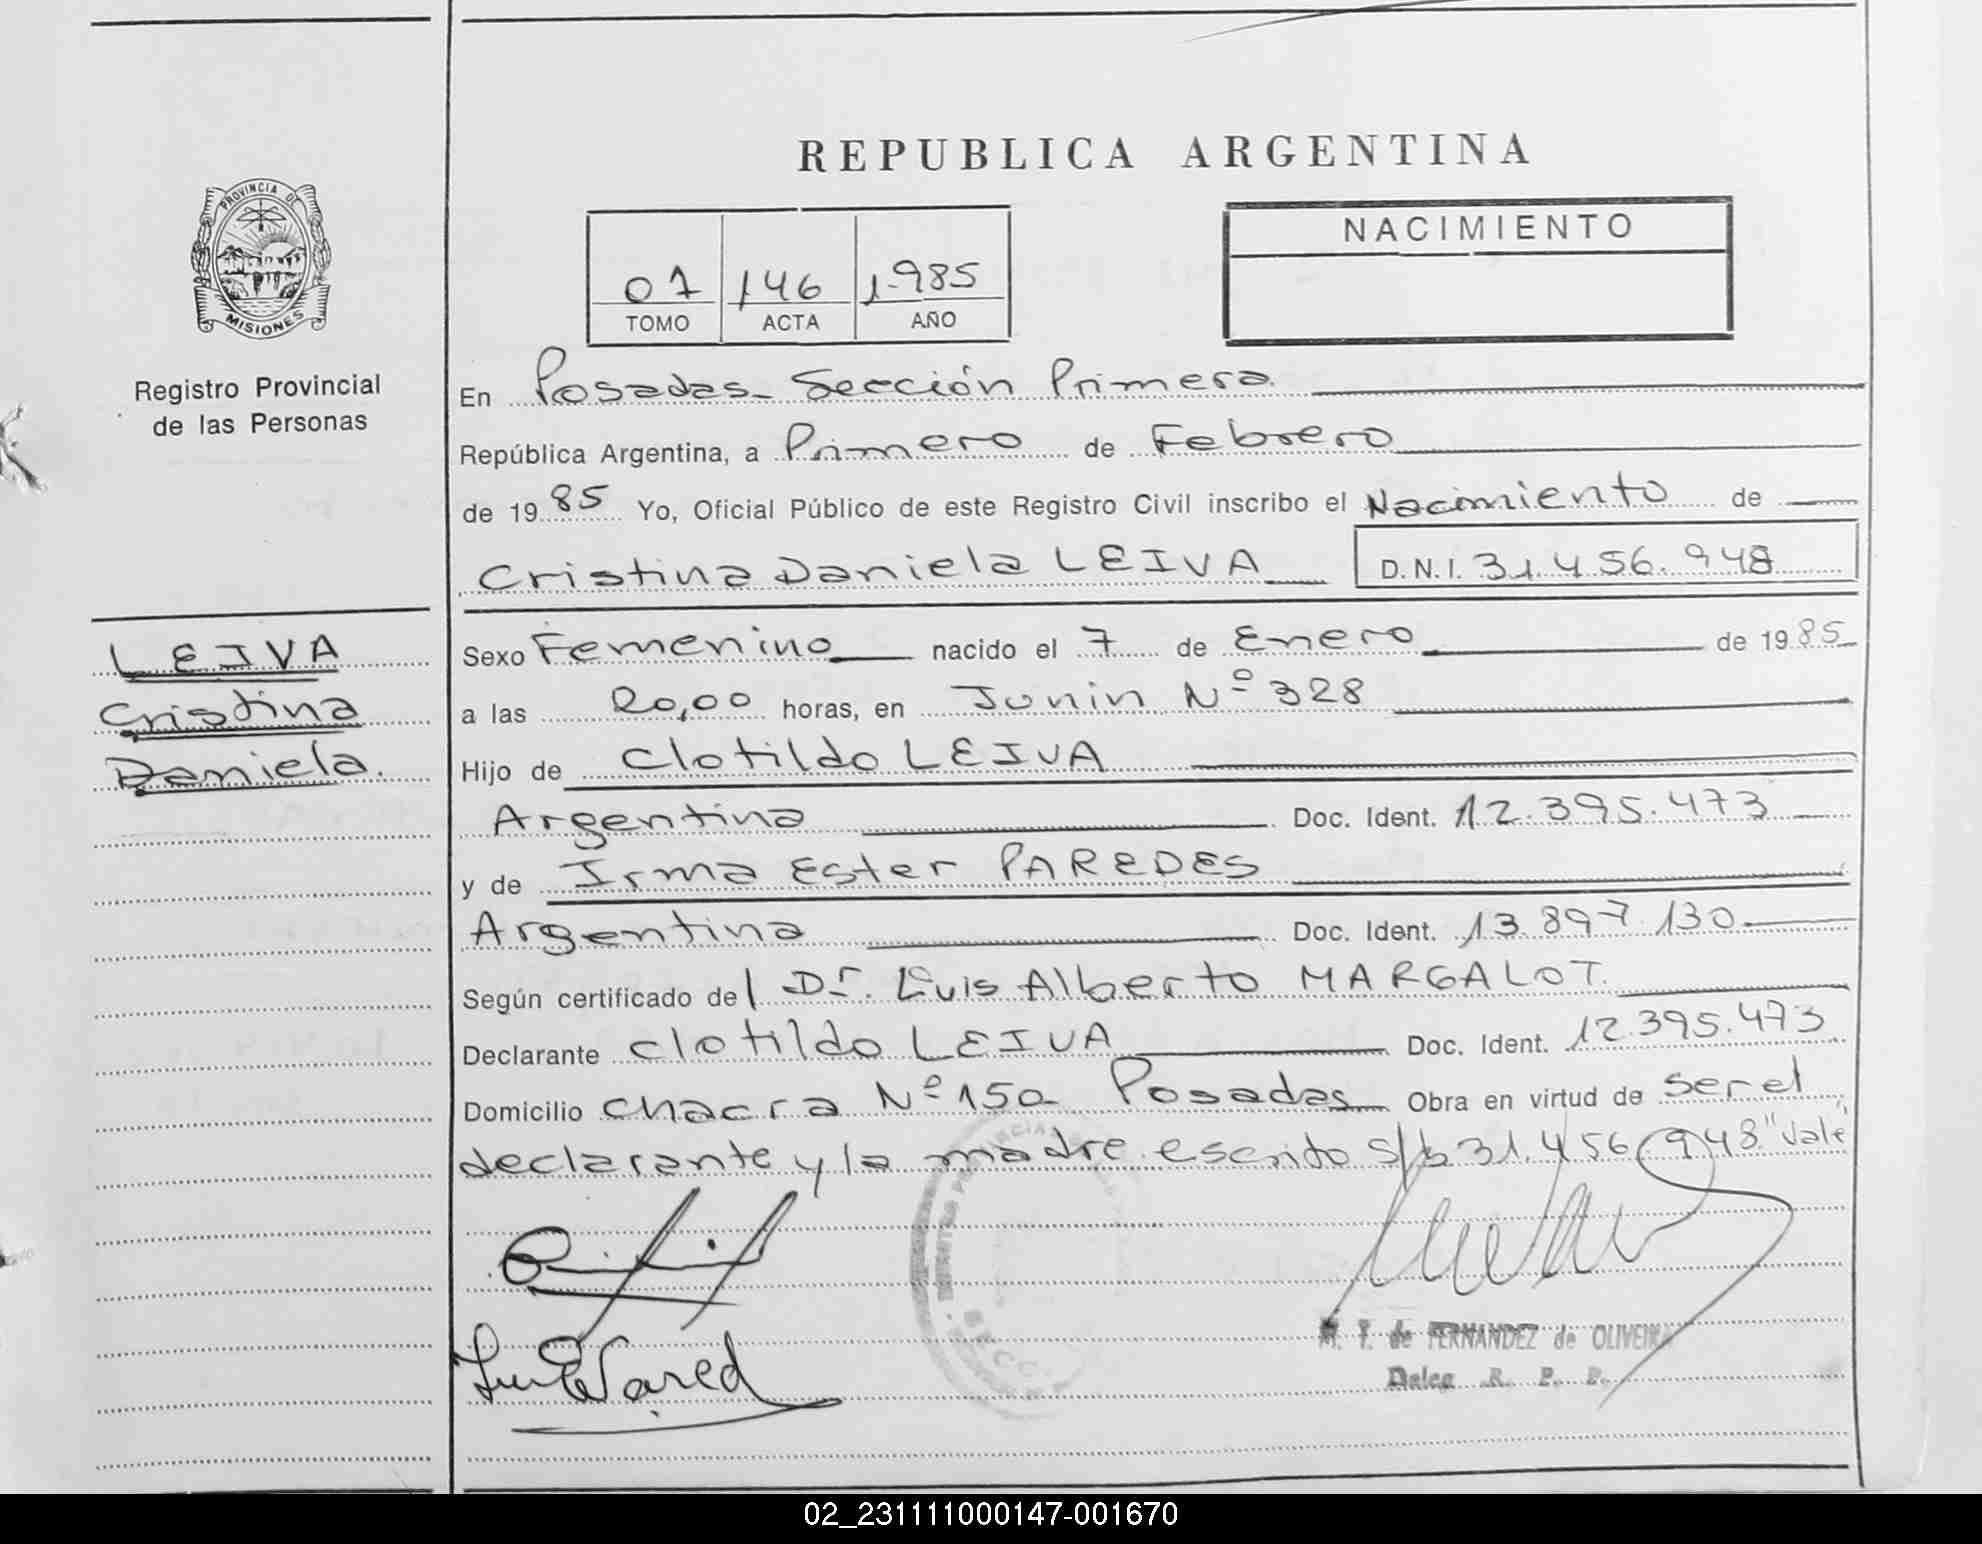 REPUBLICA ARGENTINA
PROVINCIA DE
MISIONES
Registro Provincial
de las Personas
07 146 1.985
TOMO ACTA AÑO
NACIMIENTO
En Posadas Sección Primera
República Argentina, a Primero de Febrero
de 1985 Yo, Oficial Público de este Registro Civil inscribo el Nacimiento de
Cristina Daniela LEIVA D.N.I. 31.456.948
LEIVA
Cristina
Daniela.
Sexo Femenino nacido el 7 de Enero de 1985
a las 20,00 horas, en Junin Nº 328
Hijo de Clotildo LEIVA
Argentina Doc. Ident. 12.395.473
y de Irma Ester PAREDES
Argentina Doc. Ident. 13.897.130
Según certificado del Dr. Luis Alberto MARGALOT.
Declarante Clotildo LEIVA Doc. Ident. 12.395.473
Domicilio Chacra Nº 150 Posadas Obra en virtud de ser el
declarante y la madre escrito s/b 31.456.948." Vale"
FERNANDEZ de OLIVEIRA
Deleg R. P. P.
02_231111000147-001670